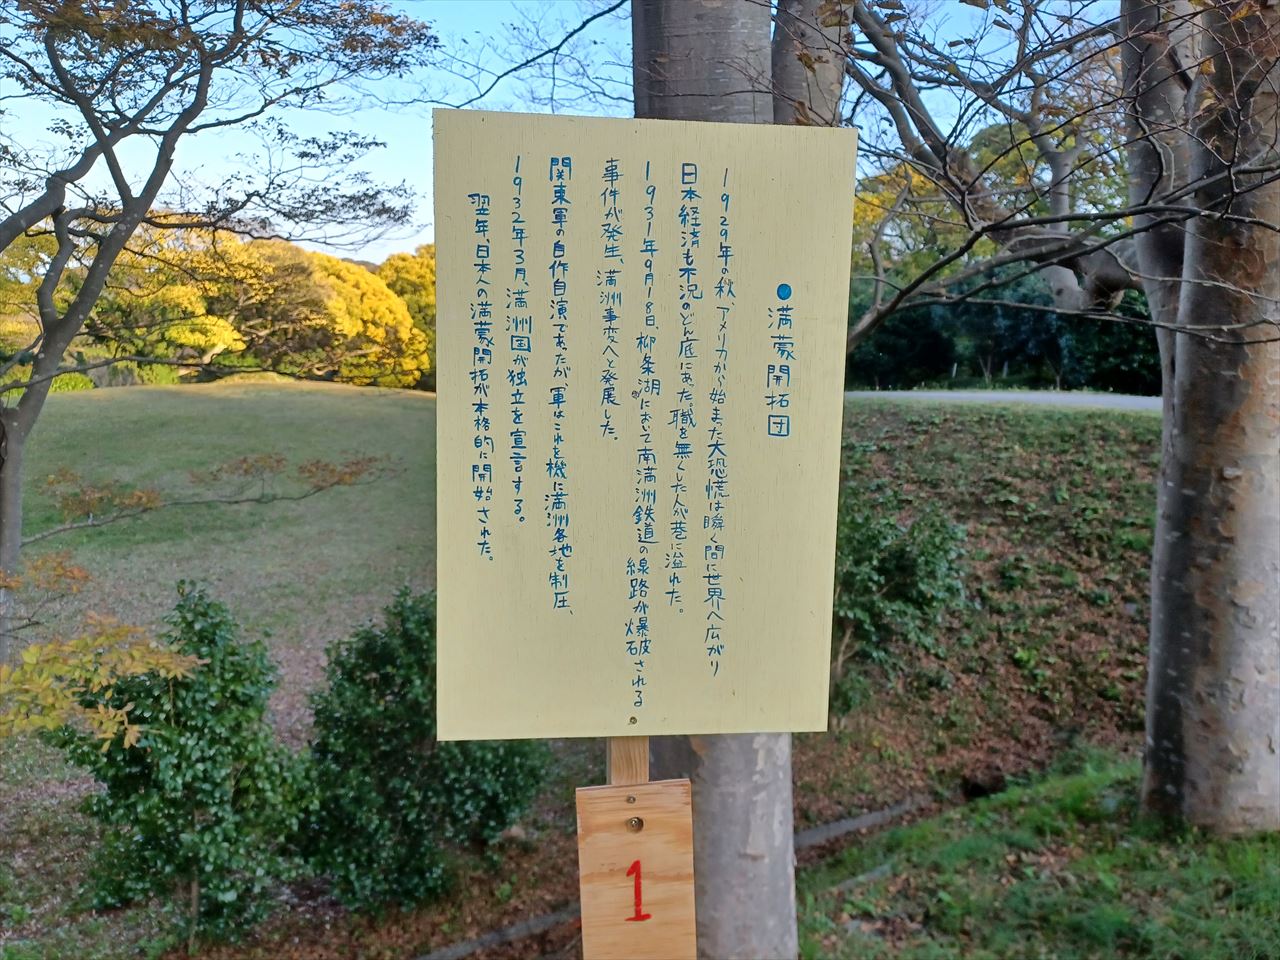 ●満蒙開拓団
1929年の秋、アメリカから始まった大恐慌は瞬く間に世界へ広がり
日本経済も不況のどん底にあった。職を無くした人が巷に溢れた。
1931年9月18日、柳条湖において南満洲鉄道の線路が爆破される
事件が発生、満洲事変へと発展した。
関東軍の自作自演であったが、軍はこれを機に満洲各地を制圧、
1932年3月、満洲国が独立を宣言する。
翌年、日本人の満蒙開拓が本格的に開始された。
1